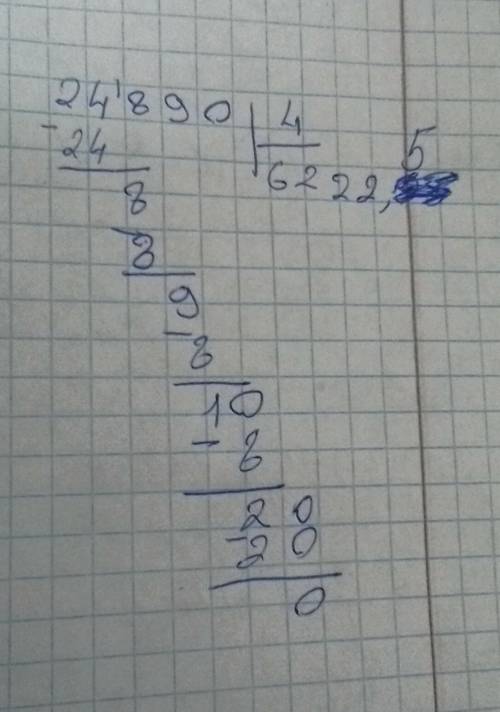 24'890 | 4
- 24 6222,5
8
- 8
9
- 8
10
- 8
20
- 20
0